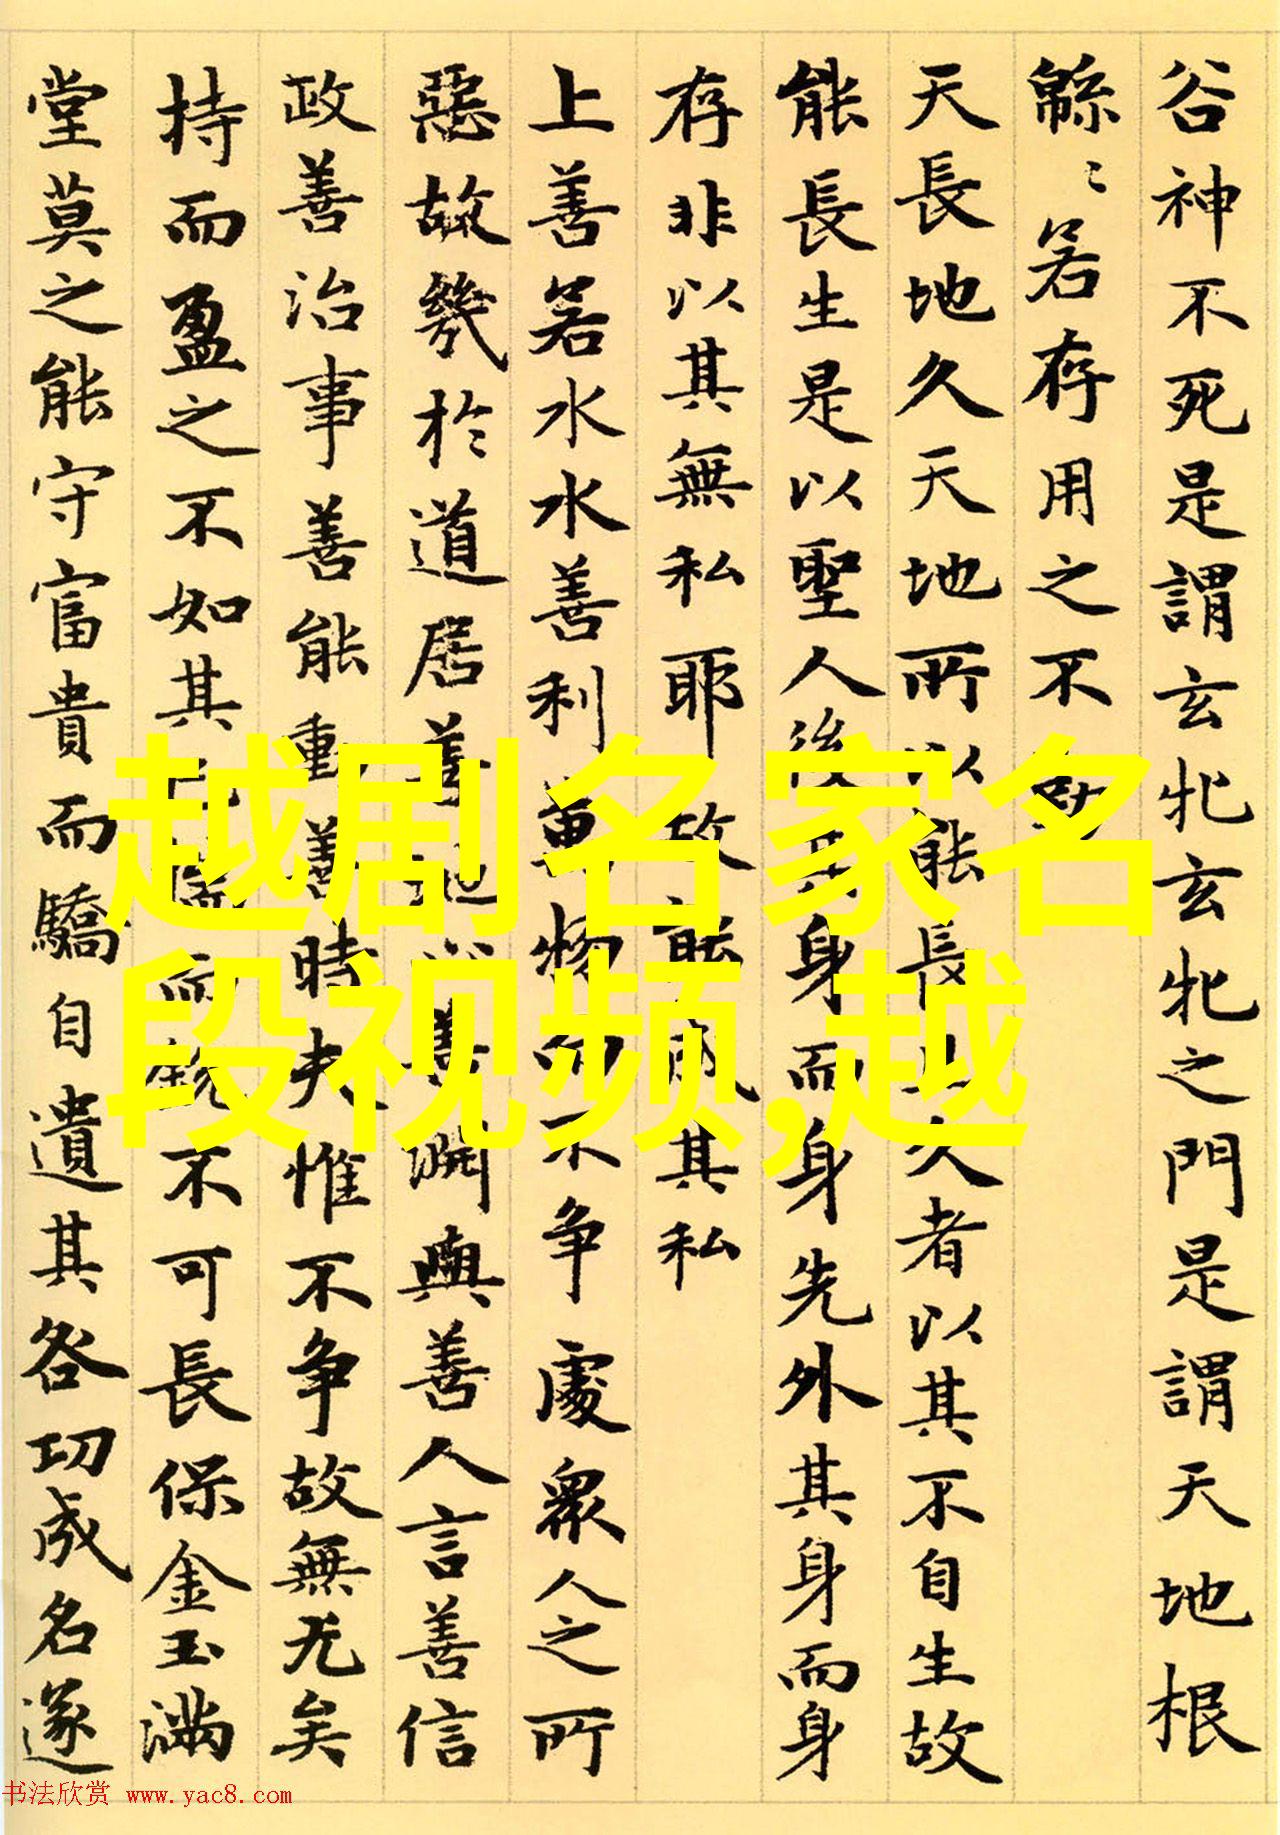 谷神不死是謂玄牝玄牝之門是謂天地根
緜〻若存用之不
天長地久天地所以能長久者以其不自生故
能長生是以聖人後其身而身先外其身而身
存非以其無私耶故能成其私
上善若水水善利萬物不争處衆人之所
惡故幾於道居善地心善渊與善人言善信
政善治事善能動善時夫惟不争故無尤矣
持而盈之不如其揣而銳不可長保金玉滿
堂莫之能守富貴而驕自遺其咎功成名遂
越剧名家名
段视频,越
书法欣赏 www.yac8.com